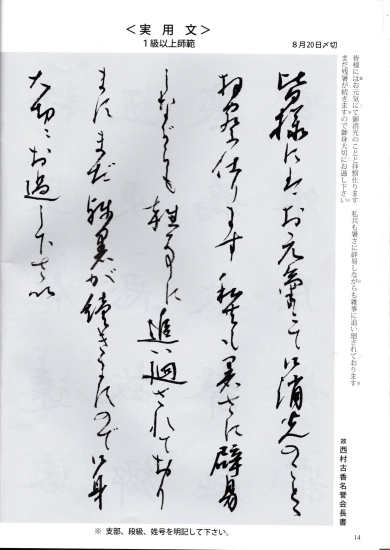 <実用文>
1級以上師範
8月20日〆切
皆様にはお元気にて御消光のことと拝察仕ります 私共も暑さに辟易しながらも雑事に追い廻されております
まだ残暑が続きますので御身大切にお過し下さい
皆様にはお元氣にて御消光のことと
拝察仕ります 私共も暑さに辟易
しながらも雑事に追い廻されており
ます まだ残暑が續きますので御身
大切にお過し下さい
故西村古香名誉会長書
※ 支部、段級、姓号を明記して下さい。
14